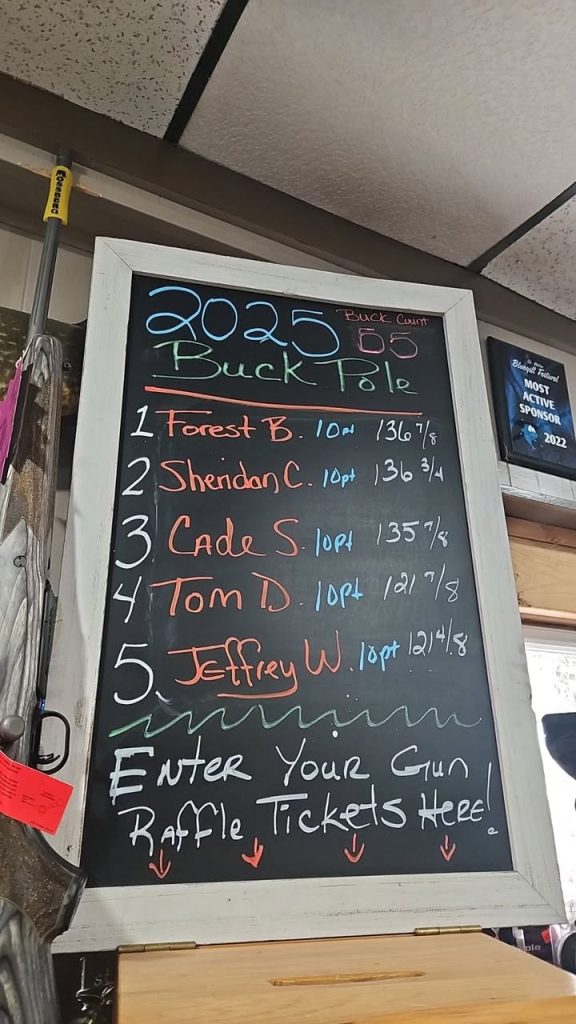 MOSSBERG
2025
Buck Count
55
Buck Pole
1 Forest B. 10pt 136 7/8
2 Sheridan C. 10pt 136 3/4
3 Cade S. 10pt 135 7/8
4 Tom D. 10pt 121 7/8
5. Jeffrey W. 10pt 121 4/8
Enter Your Gun
Raffle Tickets Here!
Bluegill Festival
MOST
ACTIVE
SPONSOR
2022